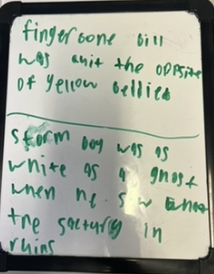 fingerbone bill
was quit the oppsite
of yellow bellies
storm boy was as
white as a ghost
when he saw
the sactury in
ruins